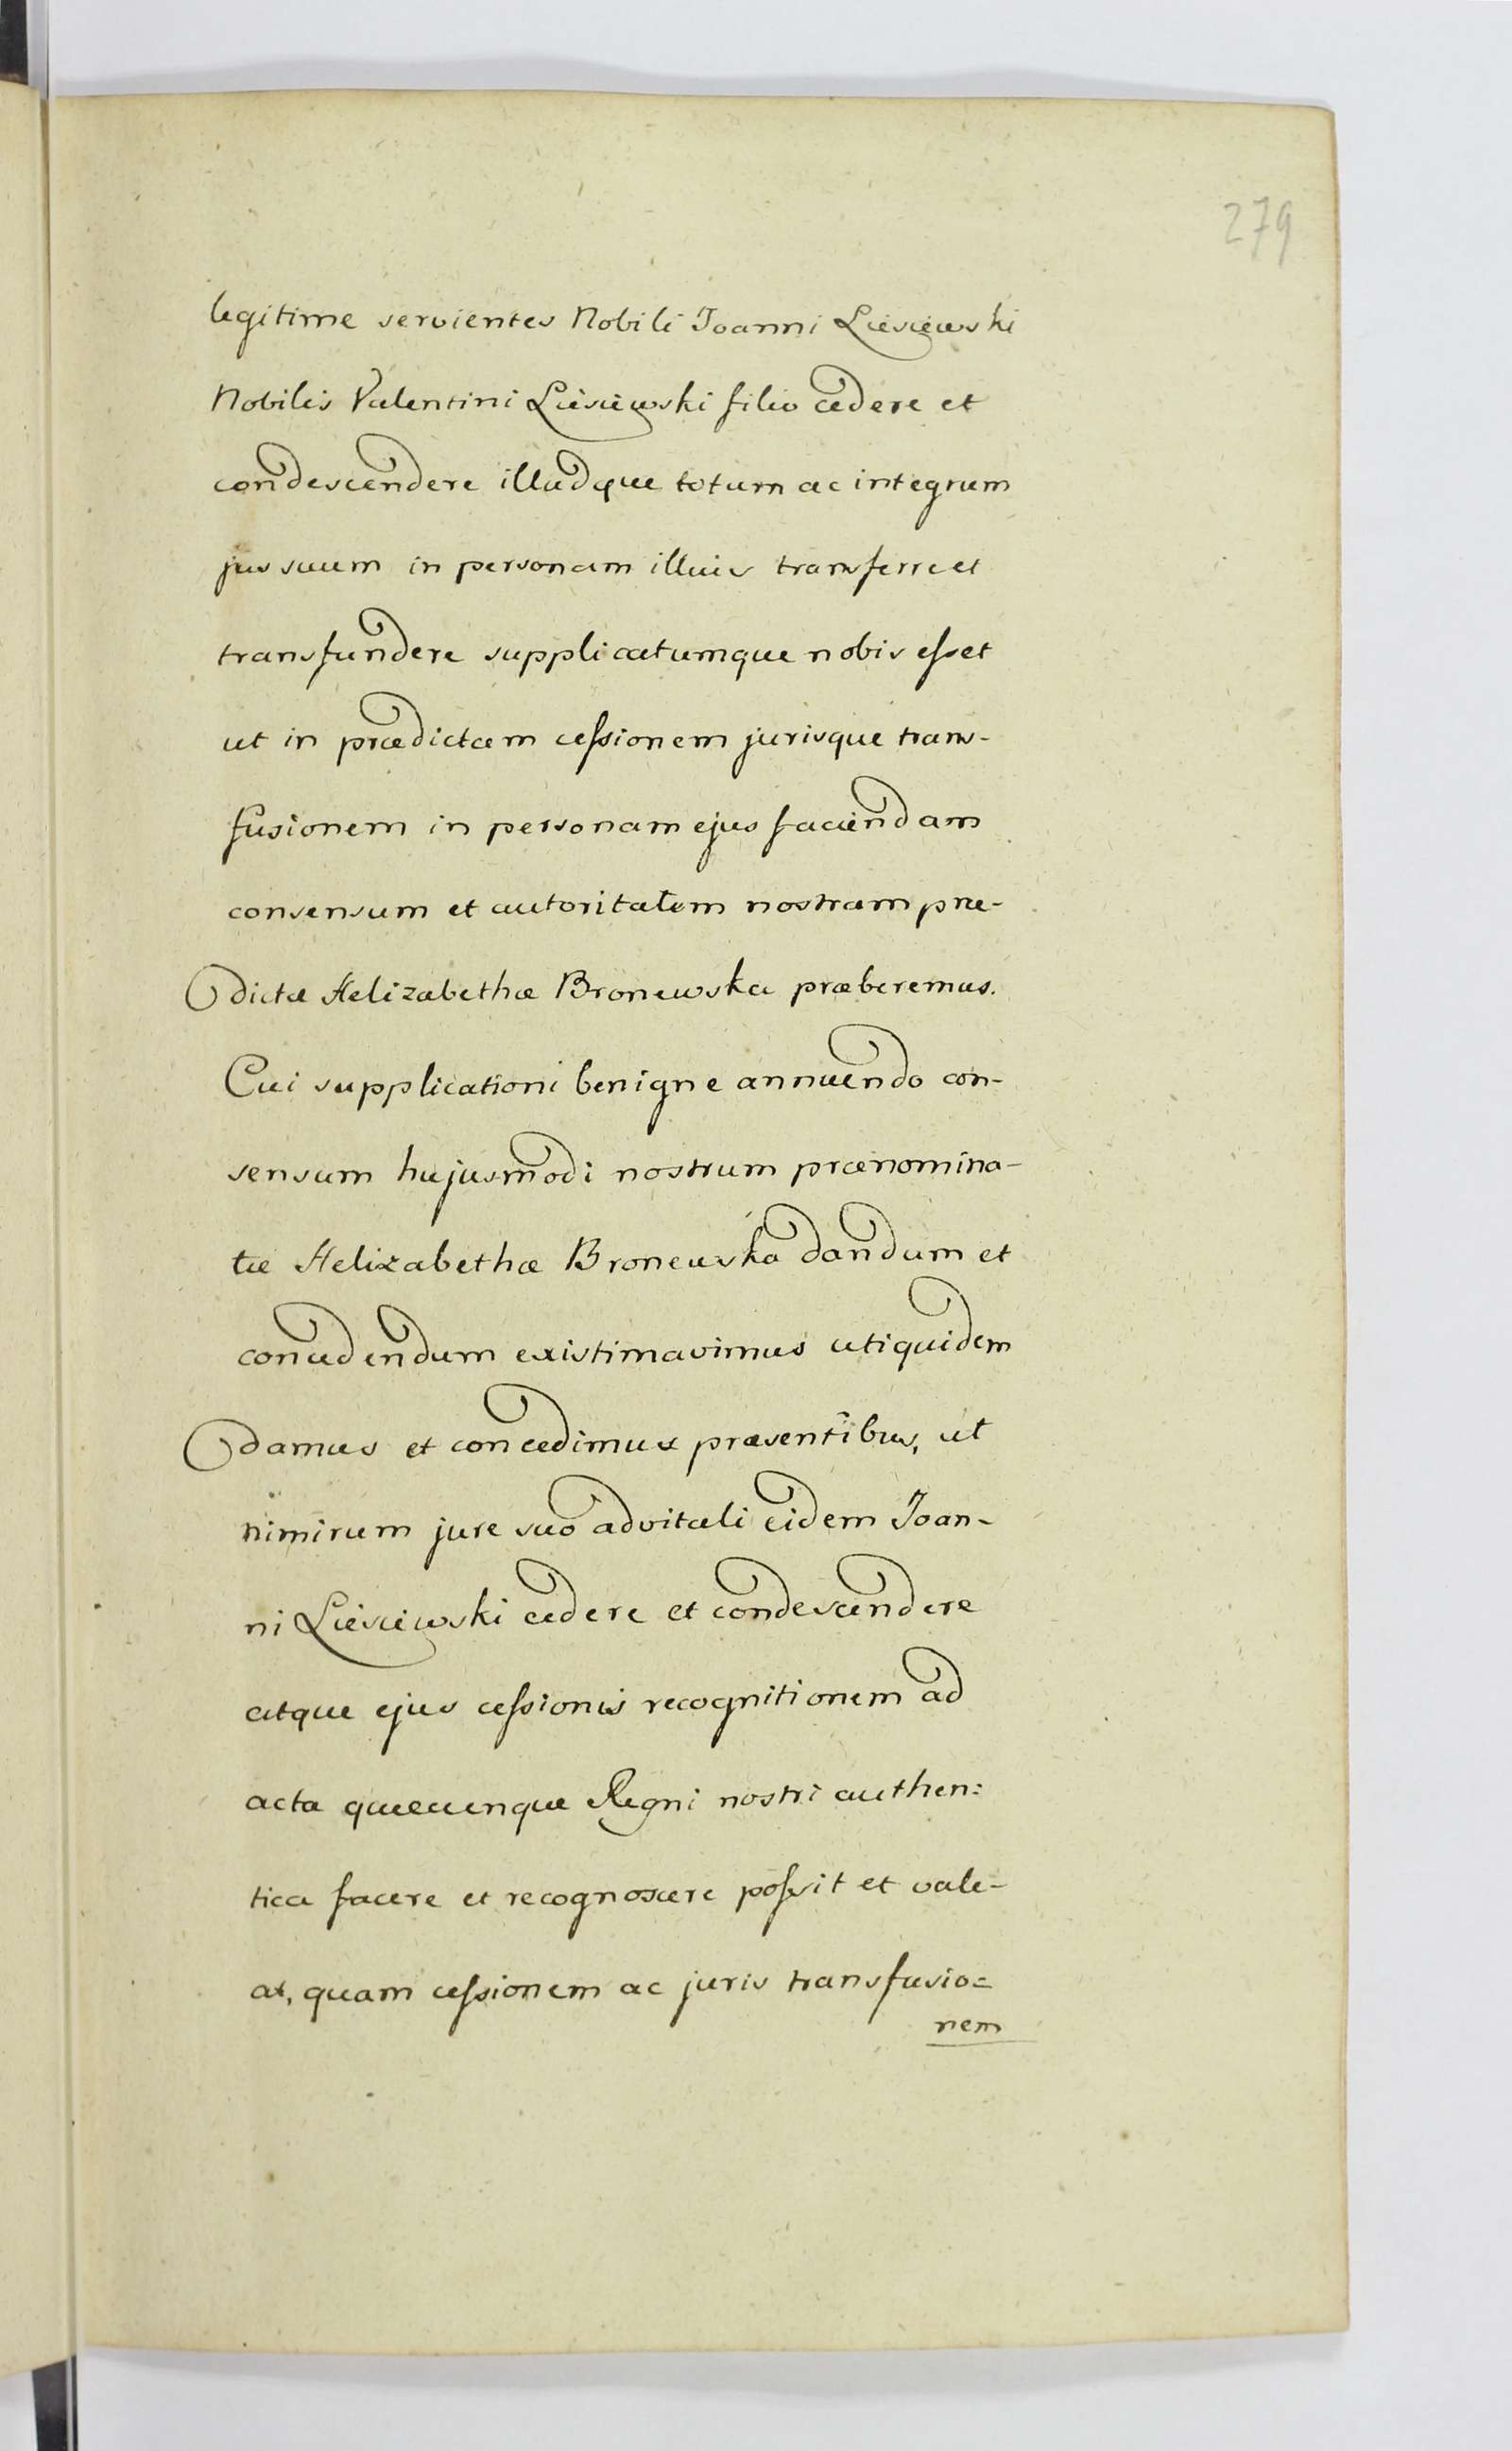 279
legitime servientes Nobili Joanni Liesiewski
Nobilis Valentini Liesiewski filio cedere et
condescendere illudque totum ac integrum
jus suum in personam illius transferre et
transfundere supplicatumque nobis esset
ut in prædictam cessionem jurisque trans-
fusionem in personam ejus faciendam
consensum et autoritatem nostram præ-
dictæ Helizabethæ Broniewska præberemus.
Cui supplicationi benigne annuendo con-
sensum hujusmodi nostrum prænomina-
tæ Helizabethæ Bronewska dandum et
concedendum existimavimus uti quidem
damus et concedimus præsentibus, ut
nimirum jure suo advitali eidem Joan-
ni Liesiewski cedere et condescendere
atque ejus cessionis recognitionem ad
acta quæcunque Regni nostri authen:
tica facere et recognoscere possit et vale-
at, quam cessionem ac juris transfusio=
nem